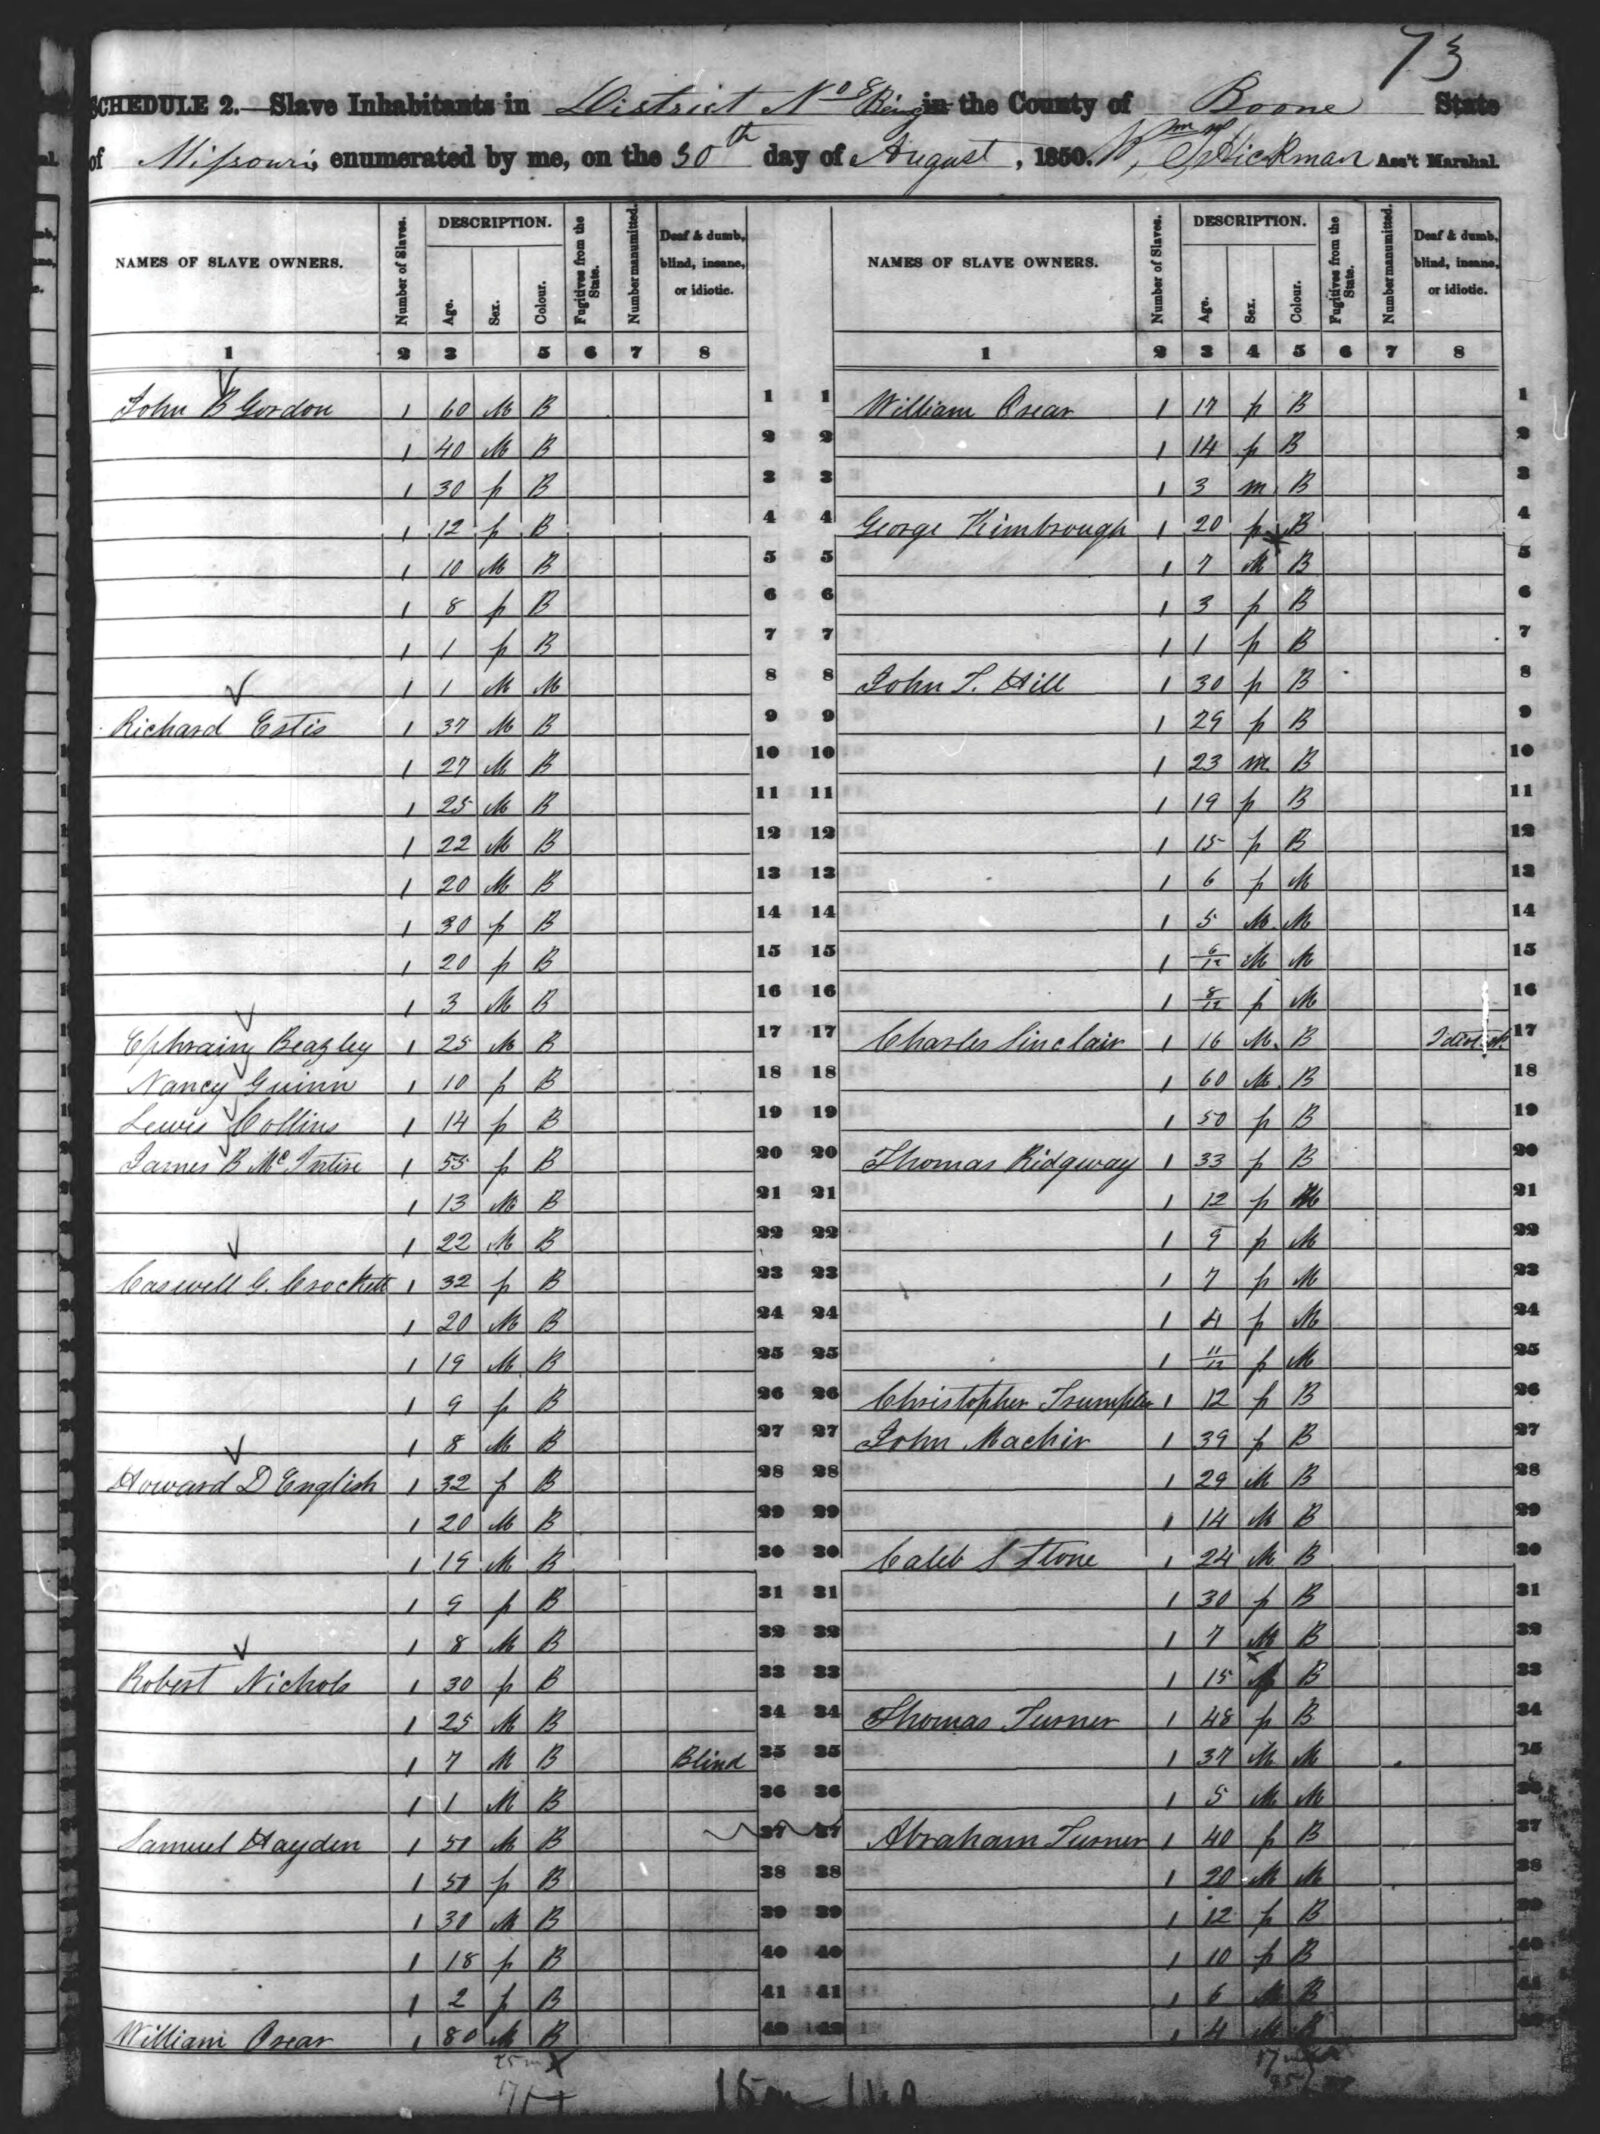 73
SCHEDULE 2.—Slave Inhabitants in District No 8 Being in the County of Boone State
of Missouri, enumerated by me, on the 30th day of August, 1850. Wm Hickman Ass't Marshal.
NAMES OF SLAVE OWNERS. Number of Slaves. DESCRIPTION. Age. Sex. Colour. Fugitives from the State. Number manumitted. Deaf & dumb, blind, insane, or idiotic. NAMES OF SLAVE OWNERS. Number of Slaves. DESCRIPTION. Age. Sex. Colour. Fugitives from the State. Number manumitted. Deaf & dumb, blind, insane, or idiotic.
1 2 3 5 6 7 8 1 2 3 4 5 6 7 8
John B Gordon 1 60 M B 1 1 William 1 17 f B 1
1 40 M B 2 2 1 14 f B 2
1 30 f B 3 3 1 3 m B 3
1 12 f B 4 4 George Kimbrough 1 20 f B 4
1 10 M B 5 5 1 7 M B 5
1 8 f B 6 6 1 3 f B 6
1 1 f B 7 7 1 1 f B 7
1 1 M M 8 8 John T. Hill 1 30 f B 8
Richard Estis 1 37 M B 9 9 1 29 f B 9
1 27 M B 10 10 1 23 m B 10
1 25 M B 11 11 1 19 f B 11
1 22 M B 12 12 1 15 f B 12
1 20 M B 13 13 1 6 f M 13
1 30 f B 14 14 1 5 M M 14
1 20 f B 15 15 1 6/12 M M 15
1 3 M B 16 16 1 8/12 f M 16
Ephraim Beazley 1 25 M B 17 17 Charles Sinclair 1 16 M B 17
Nancy Guinn 1 10 f B 18 18 1 60 M B 18
Lewis Collins 1 14 f B 19 19 1 50 f B 19
James B McIntire 1 55 f B 20 20 Thomas Ridgway 1 33 f B 20
1 13 M B 21 21 1 12 f M 21
1 22 M B 22 22 1 9 f M 22
Caswell G. Crockett 1 32 f B 23 23 1 7 f M 23
1 20 M B 24 24 1 4 f M 24
1 19 M B 25 25 1 11/12 f M 25
1 9 f B 26 26 Christopher 1 12 f B 26
1 8 M B 27 27 John Machir 1 39 f B 27
Howard D English 1 32 f B 28 28 1 29 M B 28
1 20 M B 29 29 1 14 M B 29
1 19 M B 30 30 Caleb S Stone 1 24 M B 30
1 9 f B 31 31 1 30 f B 31
1 8 M B 32 32 1 7 M B 32
Robert Nichols 1 30 f B 33 33 1 15 B 33
1 25 M B 34 34 Thomas Turner 1 48 f B 34
1 7 M B Blind 35 35 1 37 M M 35
1 1 M B 36 36 1 5 M M 36
Samuel Hayden 1 50 M B 37 37 Abraham Turner 1 40 f B 37
1 50 f B 38 38 1 20 M M 38
1 30 M B 39 39 1 12 f B 39
1 18 f B 40 40 1 10 f B 40
1 2 f B 41 41 1 6 M B 41
William 1 80 M B 42 42 1 4 M B 42
25 m 17 m
17 f